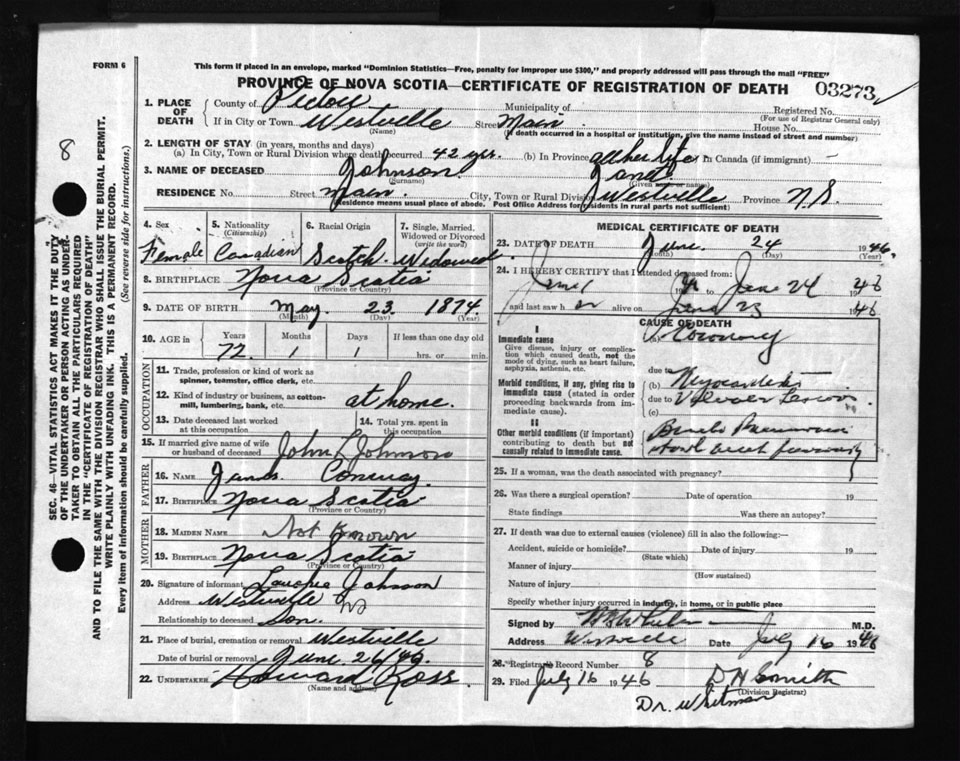 FORM 6
This form if placed in an envelope, marked "Dominion Statistics—Free, penalty for improper use $300," and properly addressed will pass through the mail "FREE"
PROVINCE OF NOVA SCOTIA—CERTIFICATE OF REGISTRATION OF DEATH 03273
1. PLACE OF DEATH County of Pictou Municipality of Registered No.
(For use of Registrar General only)
If in City or Town Westville Street Main House No.
(Name) (If death occurred in a hospital or institution, give the name instead of street and number)
2. LENGTH OF STAY (in years, months and days)
(a) In City, Town or Rural Division where death occurred 42 yrs. (b) In Province all her life In Canada (if immigrant) —
3. NAME OF DECEASED Johnson Jane
(Surname) (Given name or names)
RESIDENCE No. Street Main City, Town or Rural Division Westville Province N.S.
(Residence means usual place of abode. Post Office Address for residents in rural parts not sufficient)
4. Sex 5. Nationality (Citizenship) 6. Racial Origin 7. Single, Married, Widowed or Divorced (write the word)
Female Canadian Scotch Widowed
8. BIRTHPLACE Nova Scotia
(Province or Country)
9. DATE OF BIRTH May 23 1874
(Month) (Day) (Year)
10. AGE Years Months Days If less than one day old
72 1 1 hrs. or min.
OCCUPATION
11. Trade, profession or kind of work as spinner, teamster, office clerk, etc.
12. Kind of industry or business, as cotton-mill, lumbering, bank, etc. at home.
13. Date deceased last worked at this occupation
14. Total yrs. spent in this occupation
15. If married give name of wife or husband of deceased John L Johnson
FATHER
16. NAME James Conway
17. BIRTHPLACE Nova Scotia
(Province or Country)
MOTHER
18. MAIDEN NAME Not Known
19. BIRTHPLACE Nova Scotia
(Province or Country)
20. Signature of informant Johnson
Address Westville NS
Relationship to deceased Son.
21. Place of burial, cremation or removal Westville
Date of burial or removal June 26/46.
22. UNDERTAKER Howard Ross
(Name and address)
MEDICAL CERTIFICATE OF DEATH
23. DATE OF DEATH June 24 1946
(Month) (Day) (Year)
24. I HEREBY CERTIFY that I attended deceased from:
June 1 19 to June 24 1946
and last saw her alive on June 23 1946
CAUSE OF DEATH
I
Immediate cause
Give disease, injury or complication which caused death, not the mode of dying, such as heart failure, asphyxia, asthenia, etc.
(a) Coronary
due to
Morbid conditions, if any, giving rise to immediate cause (stated in order proceeding backwards from immediate cause).
(b) Myocarditis
due to Valvular
(c)
II
Other morbid conditions (if important) contributing to death but not causally related to immediate cause.
25. If a woman, was the death associated with pregnancy?
26. Was there a surgical operation? Date of operation 19
State findings Was there an autopsy?
27. If death was due to external causes (violence) fill in also the following:—
Accident, suicide or homicide? Date of injury 19
(State which)
Manner of injury
(How sustained)
Nature of injury
Specify whether injury occurred in industry, in home, or in public place
Signed by Whitman M.D.
Address Westville Date July 16 1946
28. Registrar's Record Number 8
29. Filed July 16 1946 D H Smith
(Division Registrar)
Dr. Whitman
8
SEC. 46— VITAL STATISTICS ACT MAKES IT THE DUTY
OF THE UNDERTAKER OR PERSON ACTING AS UNDER-
TAKER TO OBTAIN ALL THE PARTICULARS REQUIRED
IN THE "CERTIFICATE OF REGISTRATION OF DEATH"
AND TO FILE THE SAME WITH THE DIVISION REGISTRAR WHO SHALL ISSUE THE BURIAL PERMIT.
WRITE PLAINLY WITH UNFADING INK. THIS IS A PERMANENT RECORD.
Every item of information should be carefully supplied. (See reverse side for instructions.)